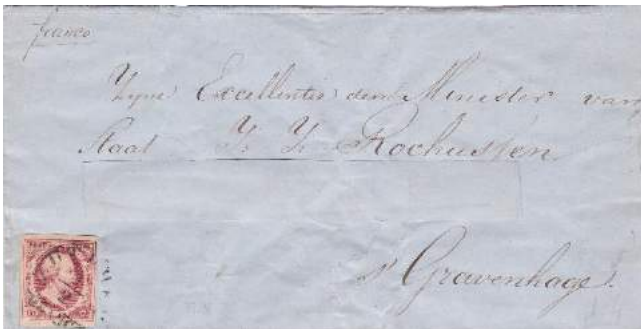 franco
Zyne Excellentie den Minister van
Staat J. J. Rochussen
's Gravenhage.